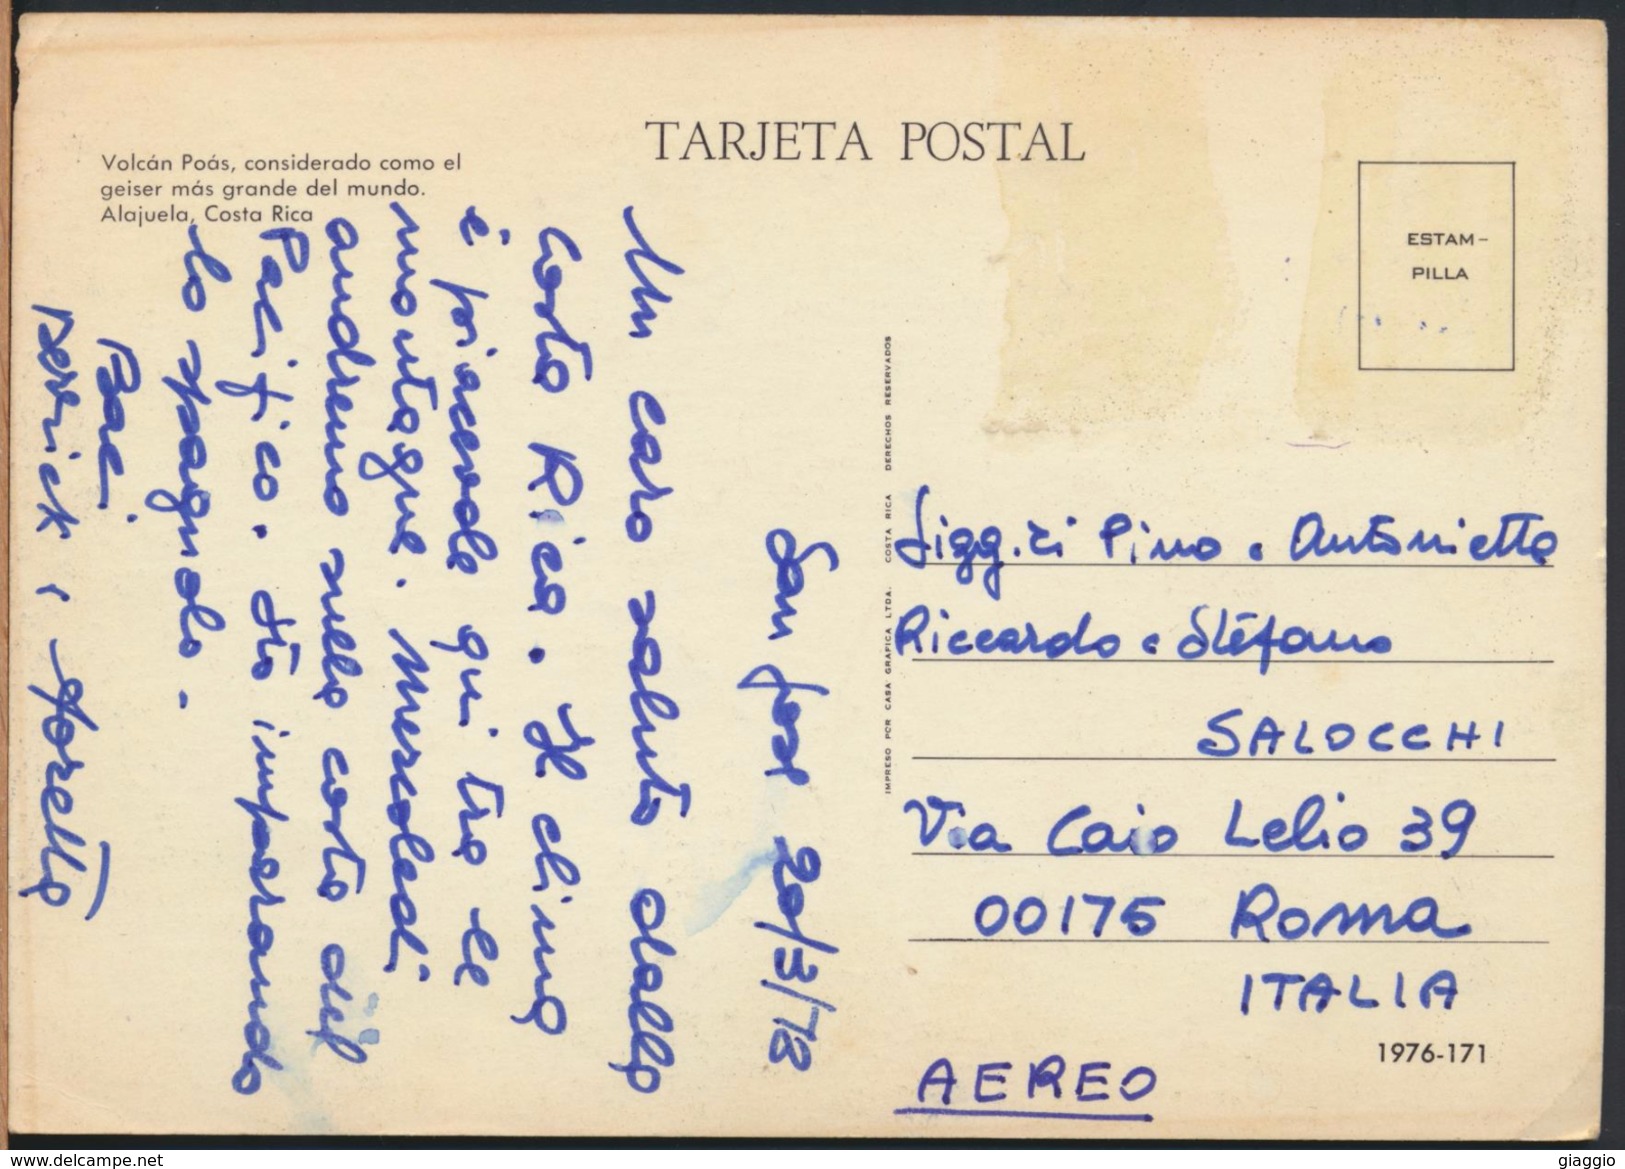 TARJETA POSTAL
Volcán Poás, considerado como el
geiser más grande del mundo.
Alajuela, Costa Rica
ESTAM-
PILLA
San Jose 20/3/78
Un caro saluto dalla
Costa Rica. Il clima
è piacevole qui tra le
montagne. Mercoledi
andremo sulla costa del
Pacifico. Sto imparando
lo spagnolo.
Baci
Derrick e Loretta
IMPRESO POR CASA GRAFICA LTDA. COSTA RICA DERECHOS RESERVADOS
Sigg.ri Pino e Antonietta
Riccardo e Stefano
SALOCCHI
Via Caio Lelio 39
00175 Roma
ITALIA
1976-171
AEREO
giaggio